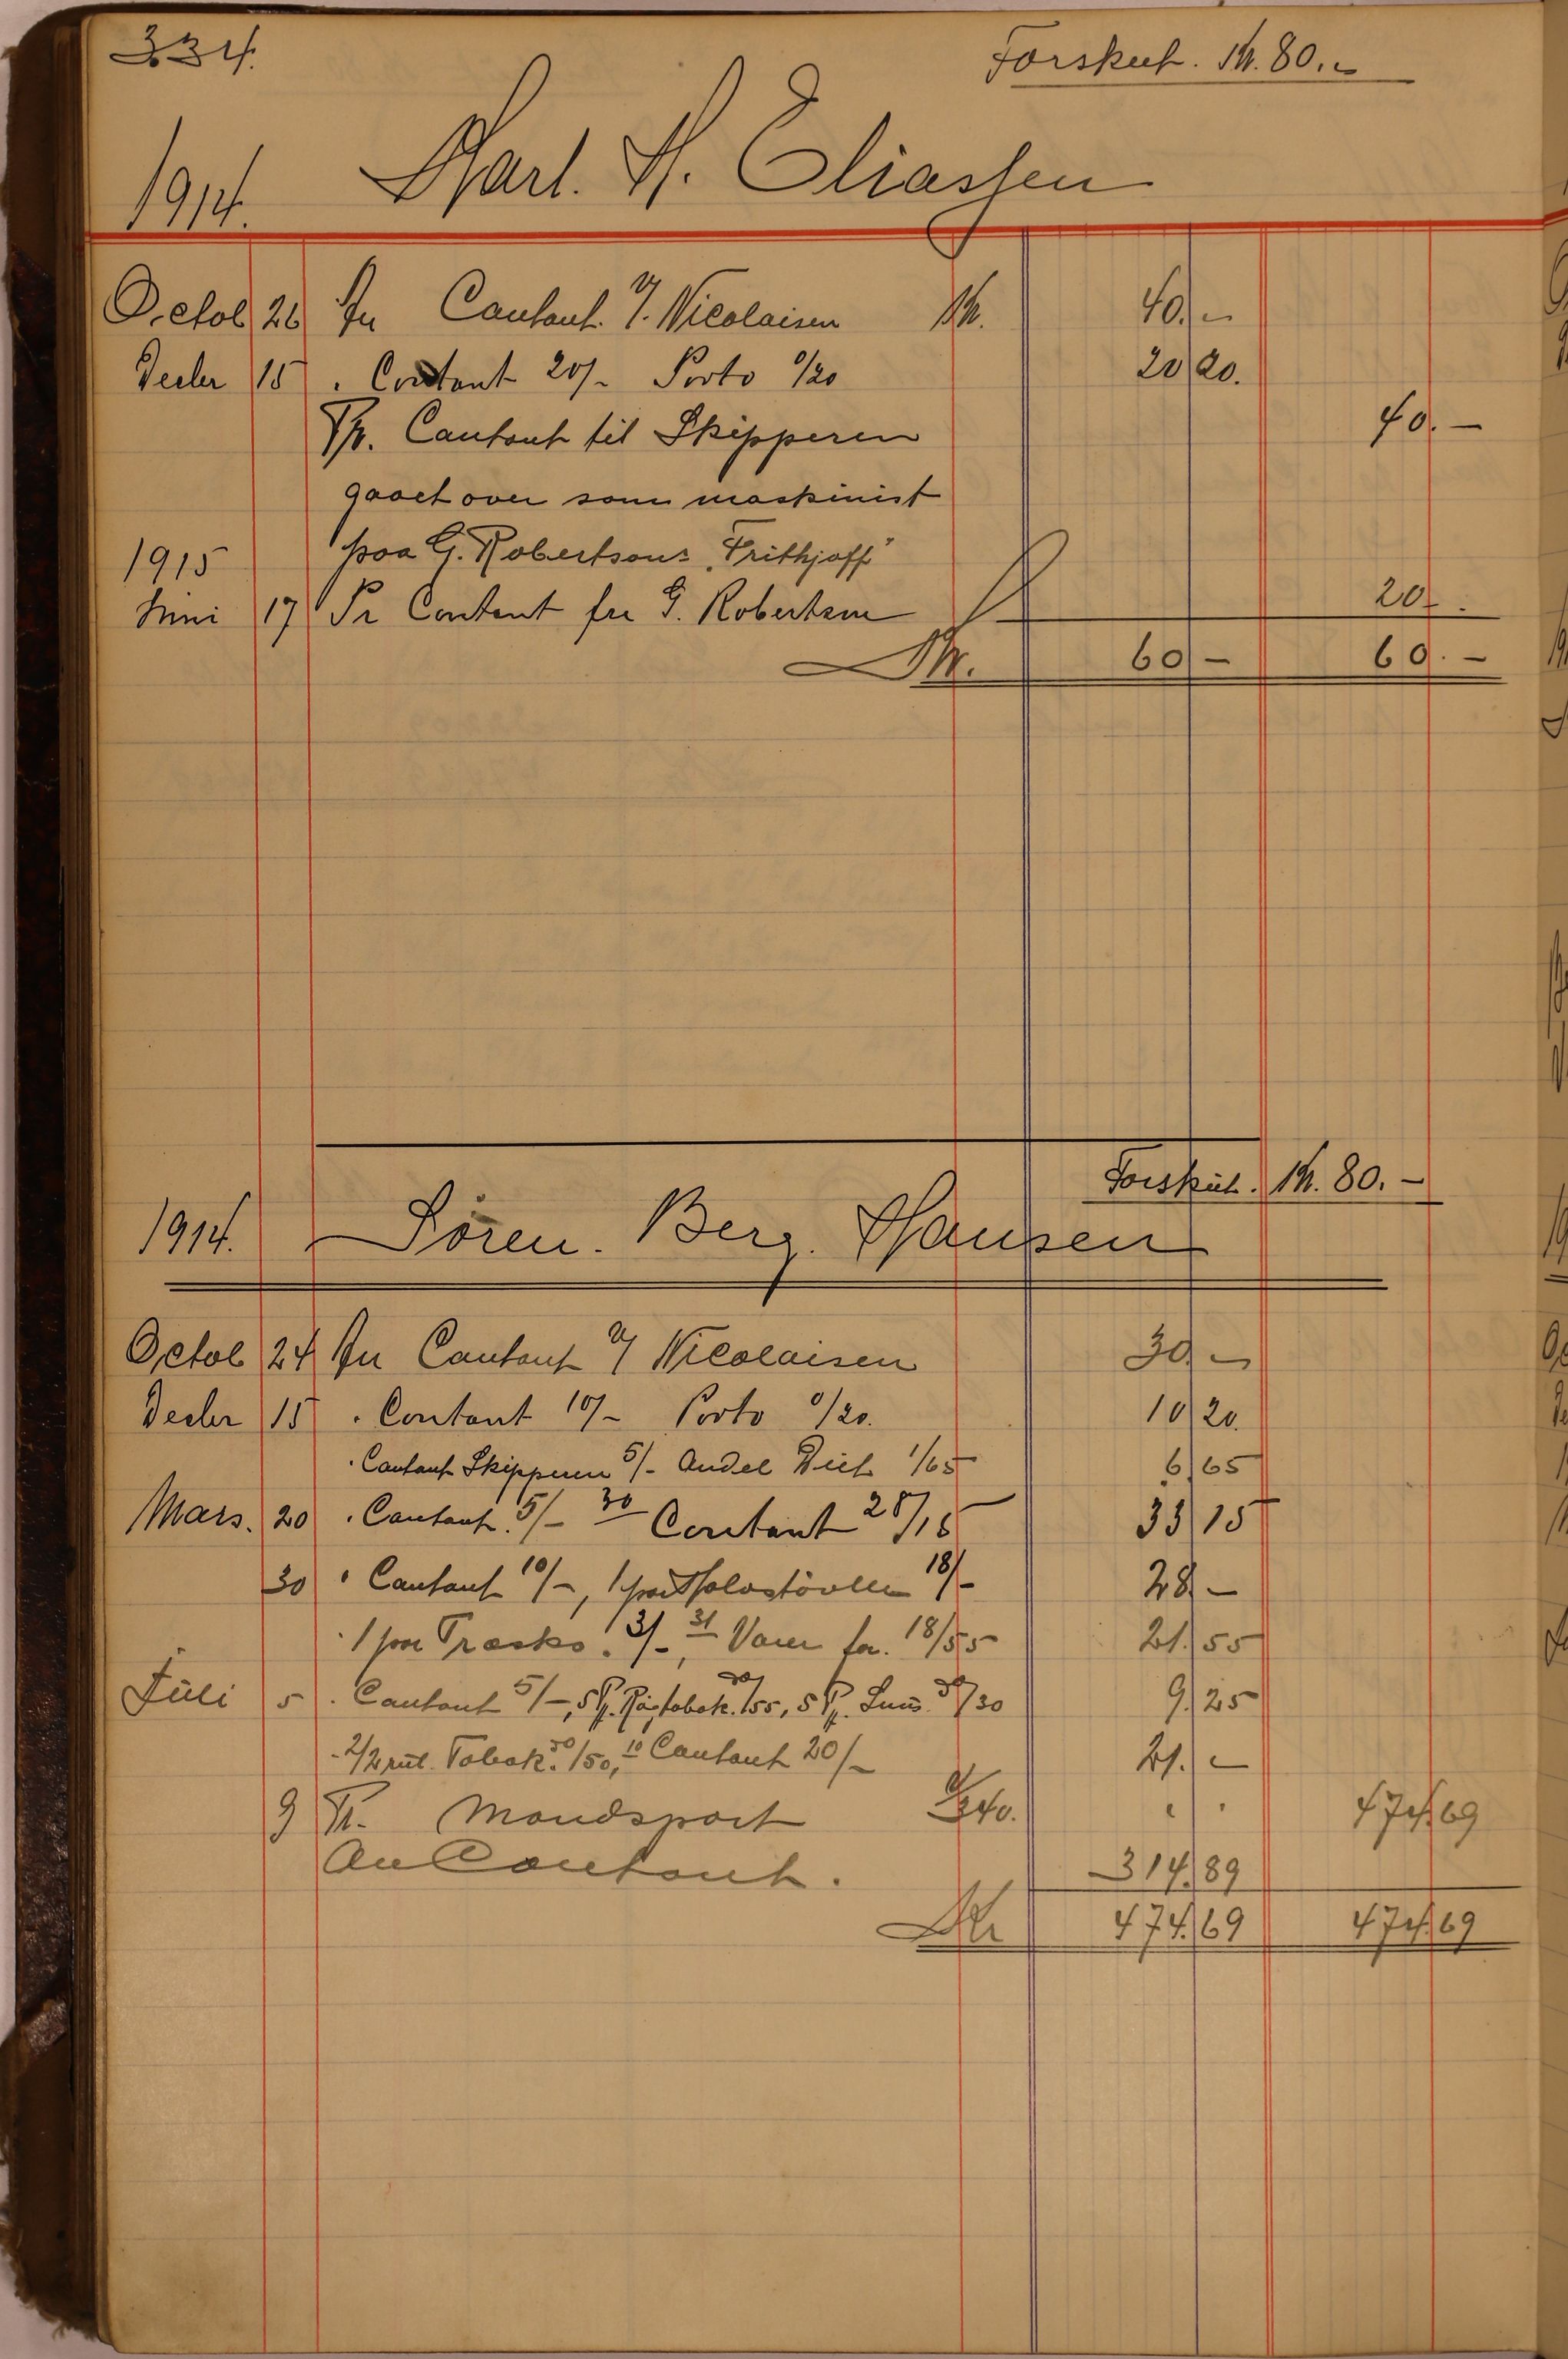 334.
Forskut. Kr. 80.-
1914. Harl. H. Eliassen
Octob 26 An Contant. v/ J. Nicolaisen Kr. 40.-
Decbr 15 " Contant 20/- Porto 0/20 20 20.
Pr. Contant til Skipperen 40.-
gaaet over som maskinist
1915 paa G. Robertsons "Frithjoff"
Juni 17 Pr Contant fra G. Robertson 20.-
Kr. 60 - 60.-
Forskut. Kr. 80.-
1914. Sören. Berg. Hansen
Octob 24 An Contant v/ Nicolaisen 30.-
Decbr 15 " Contant 10/- Porto 0/20. 10 20.
" Contant Skipperen 5/- Andel 1/65 6 65
Mars. 20 " Contant. 5/- 30 Contant 28/15 33 15
30 " Contant 10/-, 1 par 18/- 28.-
" 1 par Træsko. 3/-, 31 Varer for. 18/55 21. 55
Juli 5 " Contant 5/-, 5 tobak. /55, 5 /30 9. 25
" 2/2 rul. Tobak. 50/50, 10 Contant 20/- 21. -
9 Pr. Mandspart 474. 69
An Contant. 314. 89
Kr 474. 69 474. 69